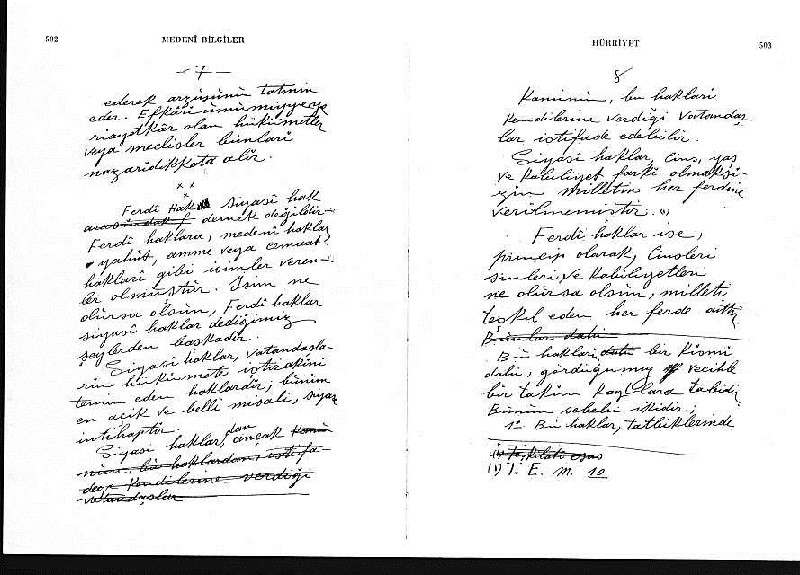 502
MEDENÎ BİLGİLER
- 7 -
ederek arzusunu tatmin
eder. Efkârı umumiyyeye
riayetkâr olan hükûmetler
veya meclisler bunları
nazarıdikkata alır.
x x
x
Ferdî hak siyasî hak
demek değildir.
Ferdî haklara, medenî haklar
yahut, amme veya
hakları gibi isimler veren-
ler olmuştur. İsim ne
olursa olsun, Ferdî haklar
siyasî haklar dediğimiz
şeylerden başkadır.
Siyasî haklar, vatandaşla-
rın hükûmete iştirakini
temin eden haklardır; bunun
en açık ve belli misali, siyasî
intihaptır.
Siyasî haklardan, ancak kanu-
nun bu haklardan istifa-
deye kendilerine verdiği
vatandaşlar
HÜRRİYET
503
8
Kanunun, bu hakları
kendilerine verdiği vatandaş
lar istifade edebilir.
Siyasî haklar, cins, yaş
ve kabiliyet farkı olmaksı-
zın milletin her ferdine
verilmemiştir. (1)
Ferdî haklar ise,
prensip olarak, cinsleri
sinleri ve kabiliyetleri
ne olursa olsun, milleti
teşkil eden her ferde aittir.
Bunlar dahi
Bu hakların dahi bir kısmı
dahi, gördüğümüz vecihle
bir takım kayıtlara tabidir.
Bunun sebebi ikidir;
1º Bu haklar, tatbiklerinde
(1) İ. E. M. 10